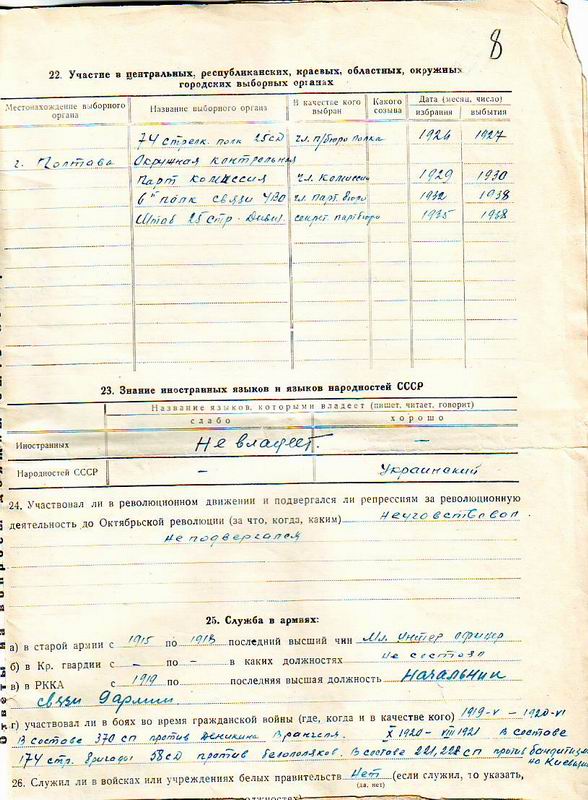 8
22. Участие в центральных, республиканских, краевых, областных, окружных
городских выборных органах
Местонахождение выборного органа | Название выборного органа | В качестве кого выбран | Какого созыва | Дата (месяц, число) избрания | выбытия
74 стрелк. полк 25сд | чл. п/бюро полка | 1926 | 1927
г. Полтава | Окружная контрольная
парт комиссия | чл. комиссии | 1929 | 1930
6й полк связи УВО | чл. парт. бюро | 1932 | 1938
Штаб 25 стр. Дивиз. | секрет. партбюро | 1935 | 1938
23. Знание иностранных языков и языков народностей СССР
Название языков, которыми владеет (пишет, читает, говорит)
слабо | хорошо
Иностранных | Не владеет. | –
Народностей СССР | – | Украинский
24. Участвовал ли в революционном движении и подвергался ли репрессиям за революционную
деятельность до Октябрьской революции (за что, когда, каким) Неучавствовал
не подвергался
25. Служба в армиях:
а) в старой армии с 1915 по 1918 последний высший чин Мл. унтер офицер
б) в Кр. гвардии с – по – в каких должностях не состоял
в) в РККА с 1919 по последняя высшая должность Начальник
связи 9 армии.
г) участвовал ли в боях во время гражданской войны (где, когда и в качестве кого) 1919-V – 1920-VI
В составе 370 сп против Деникина Врангеля. X 1920 – VIII 1921 В составе
174 стр. бригады 58СД против белополяков. В составе 221, 228 сп против бандитизма
на Киевщ
26. Служил ли в войсках или учреждениях белых правительств нет (если служил, то указать,
(да, нет)
должностях)